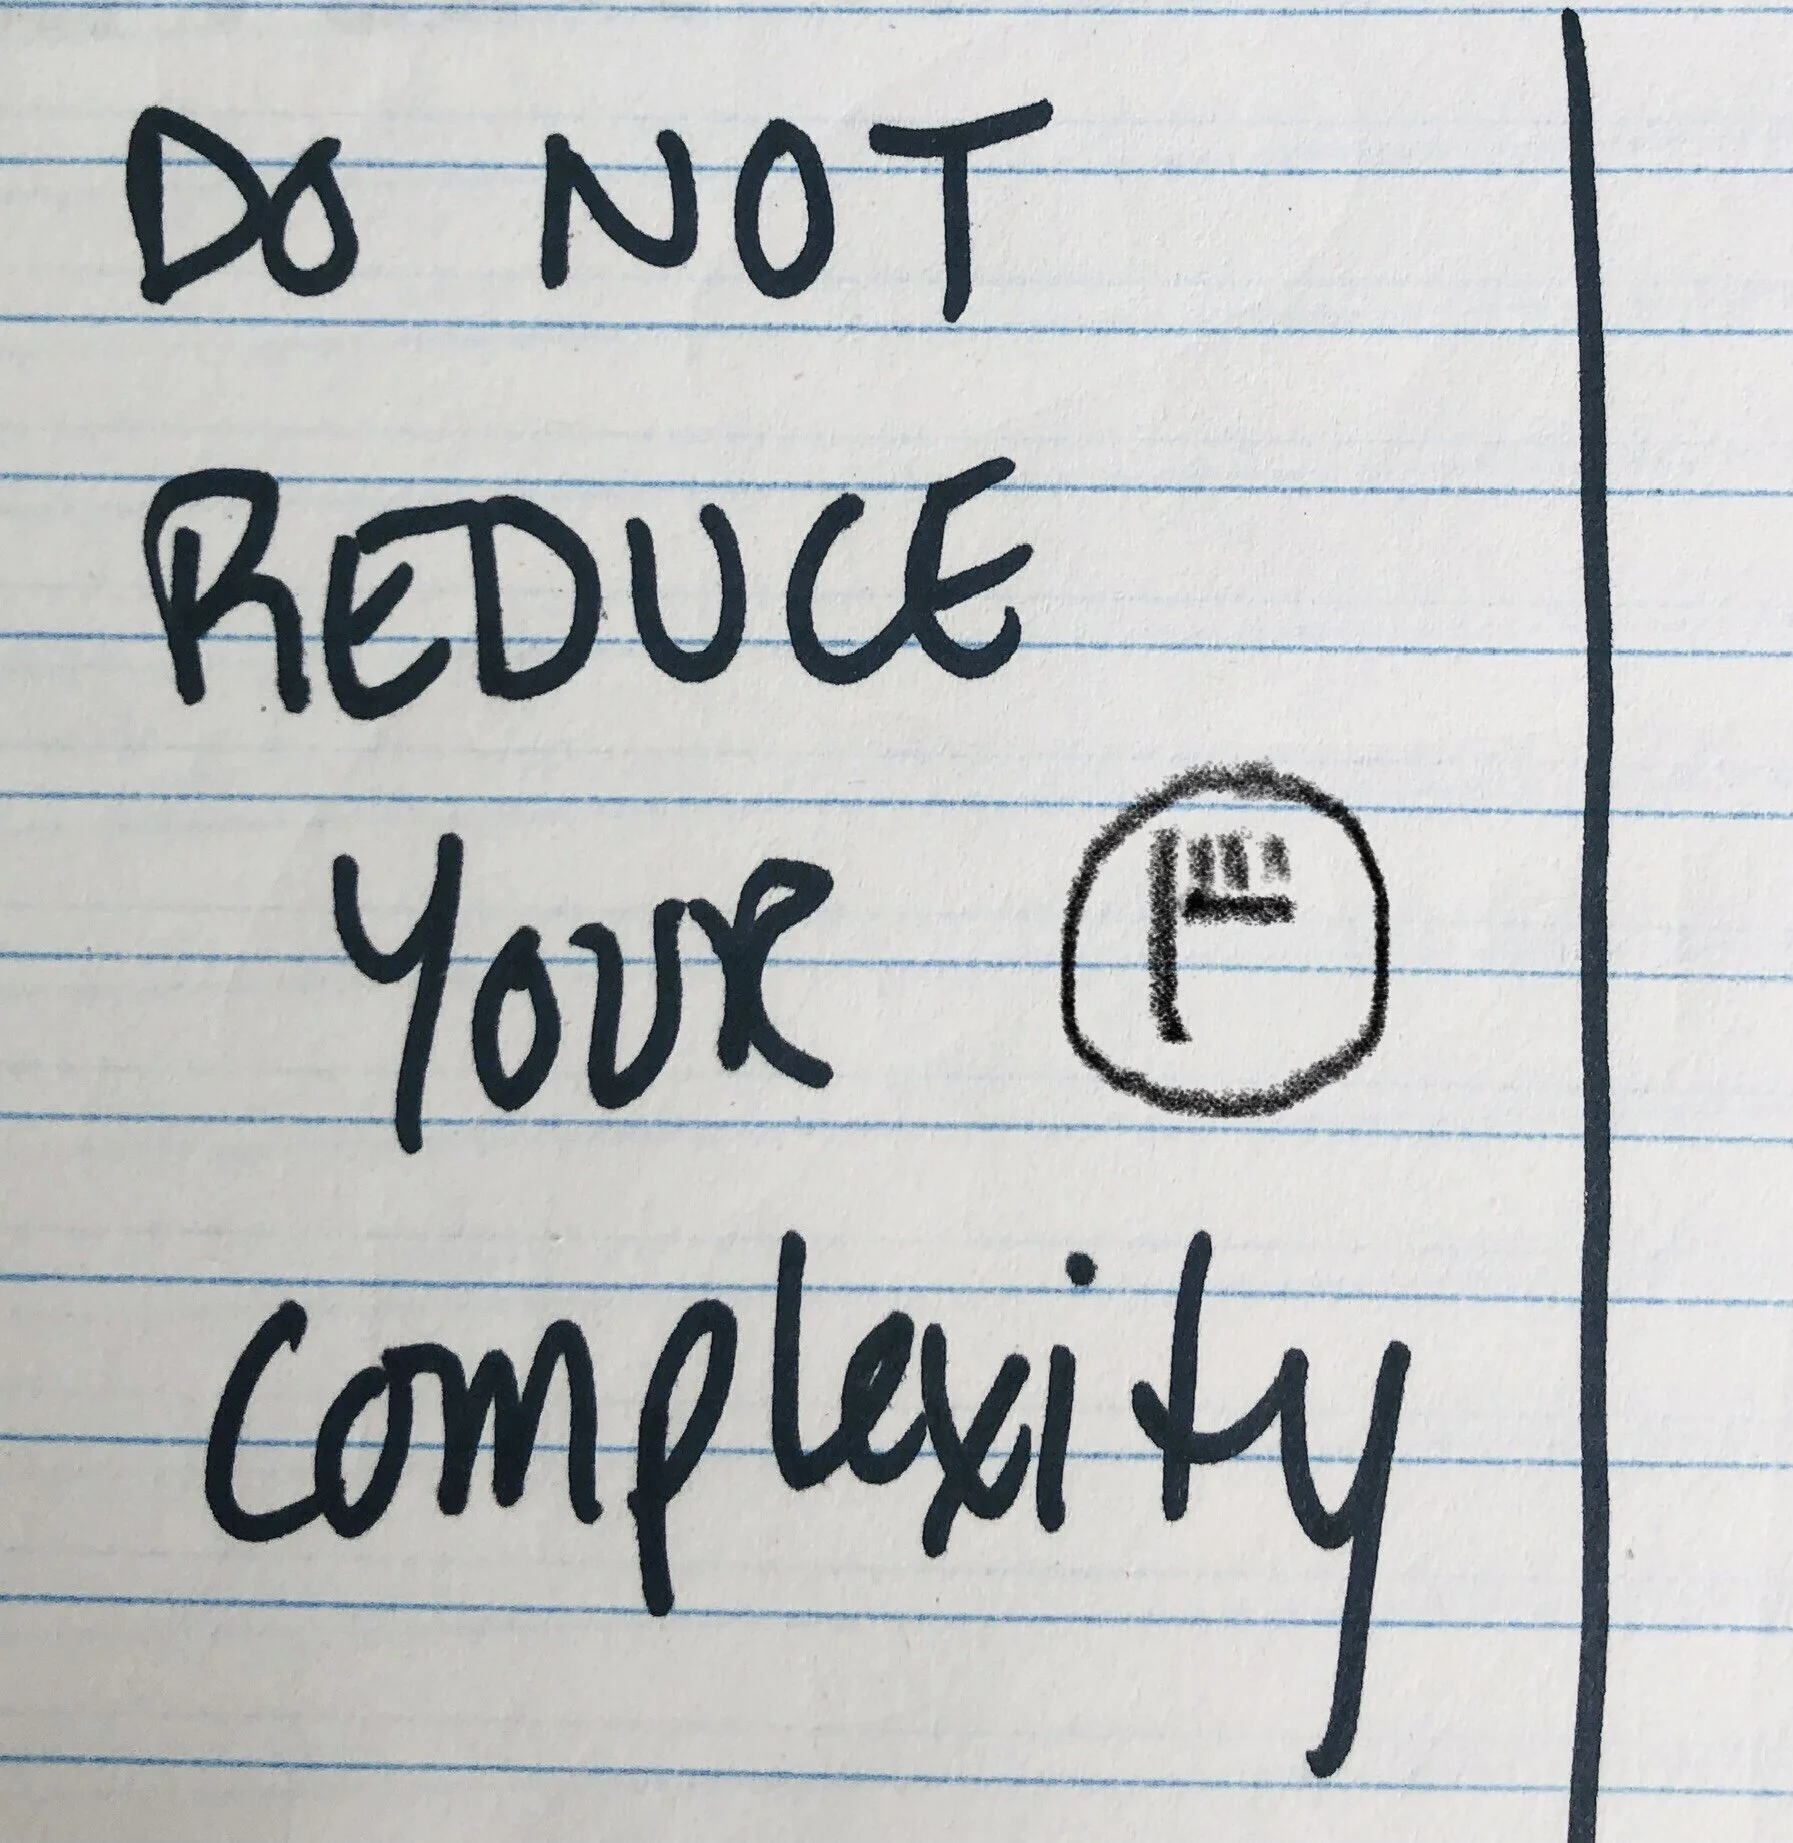 DO NOT
REDUCE
YOUR
complexity